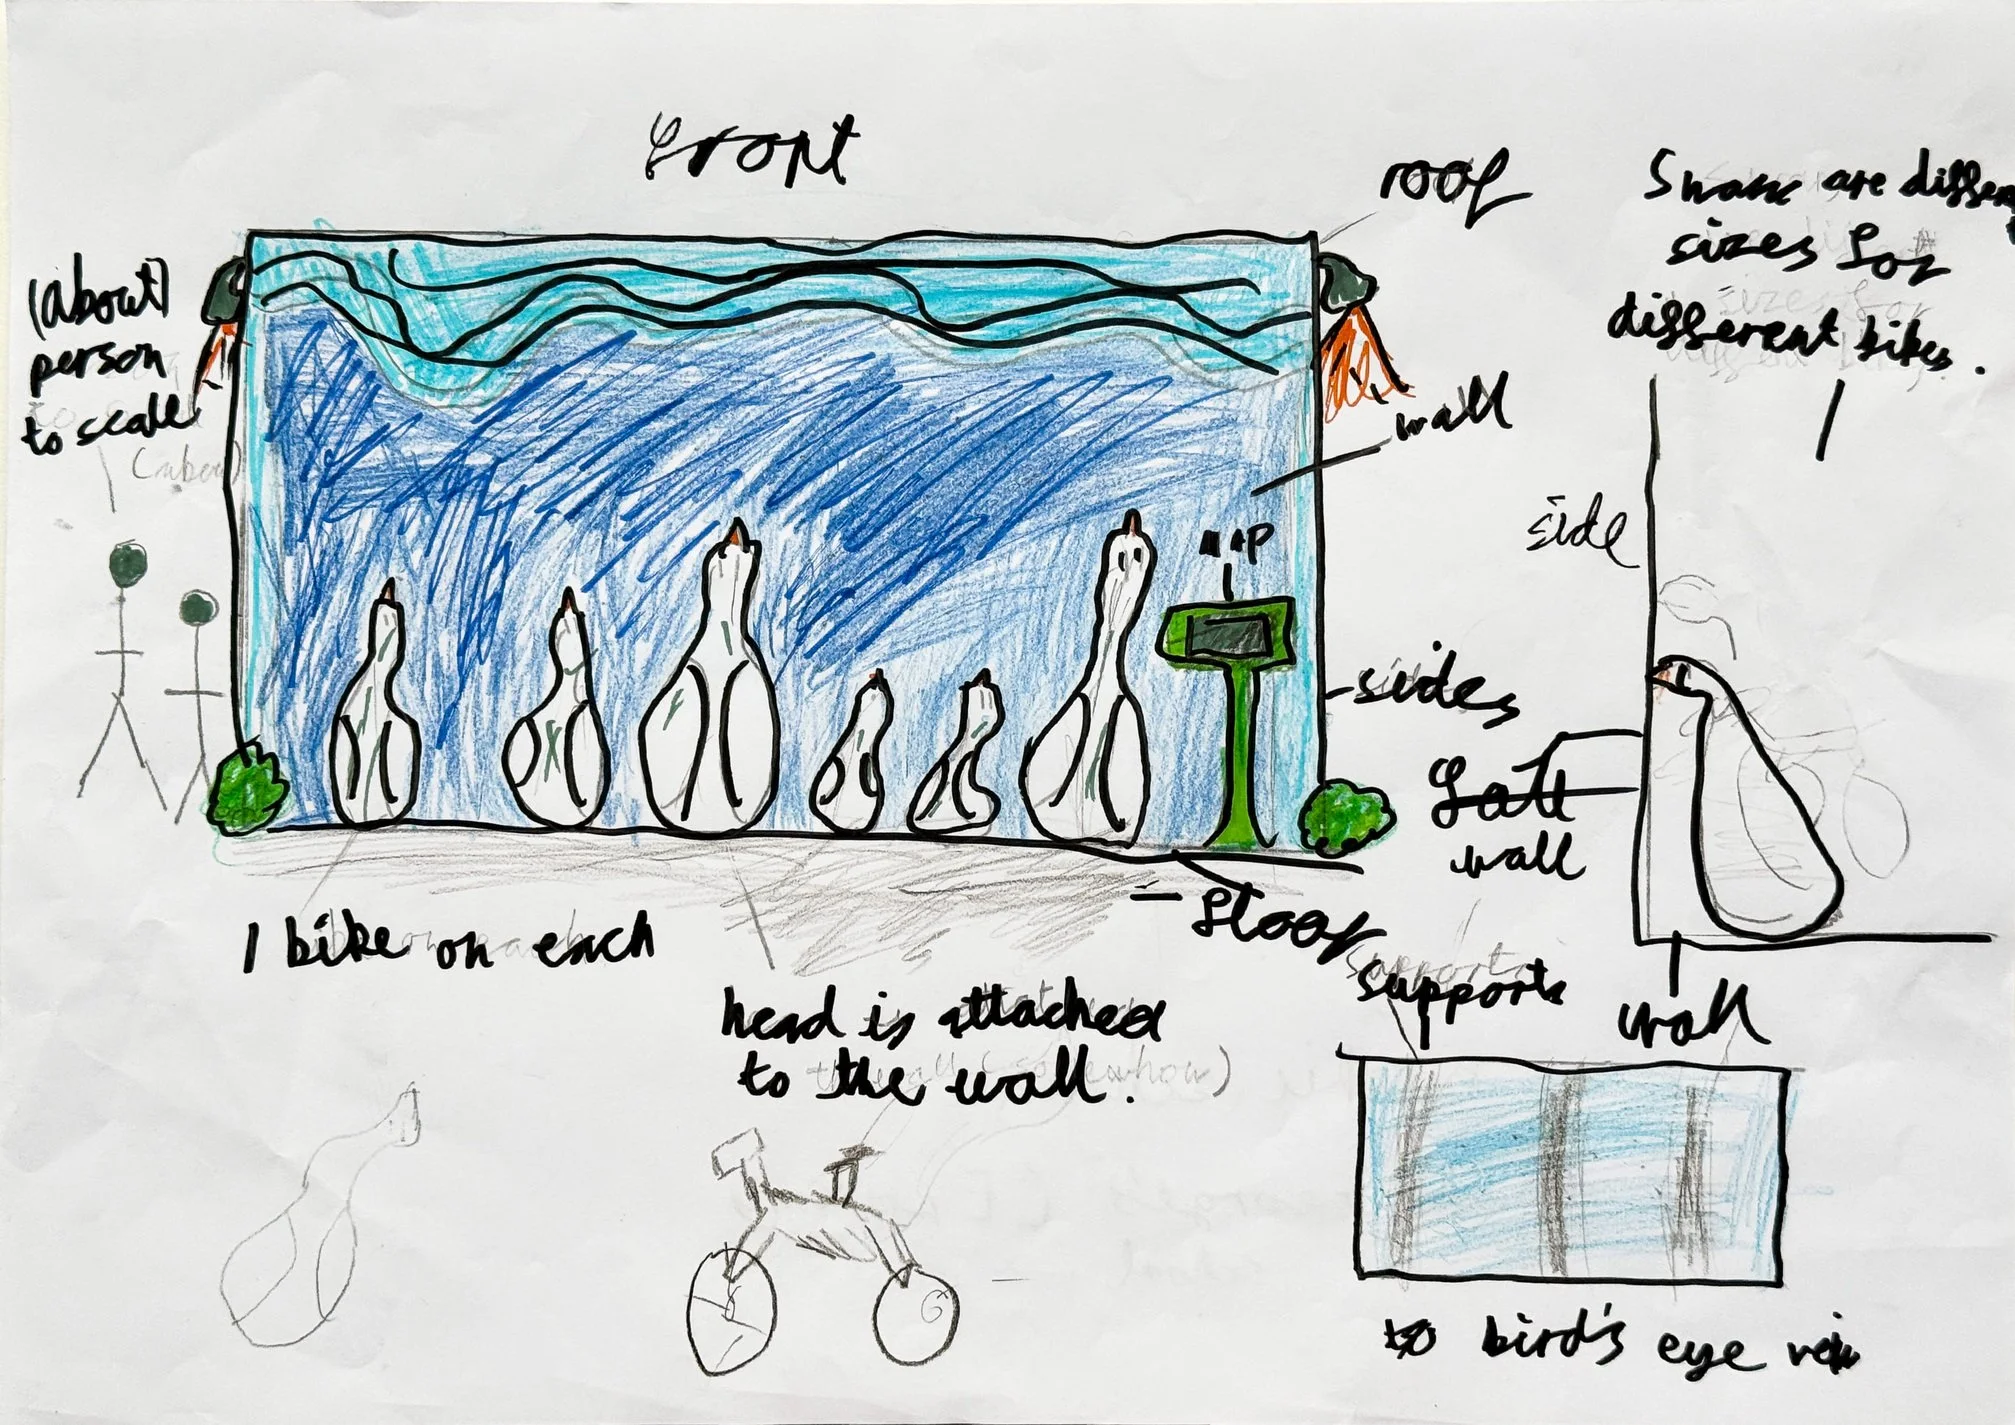 front
roof
Swans are differen
sizes for
different bikes.
(about)
person
to scale
wall
map
side
sides
wall
1 bike on each
floor
supports
wall
head is attached
to the wall. (somehow)
bird's eye veiw